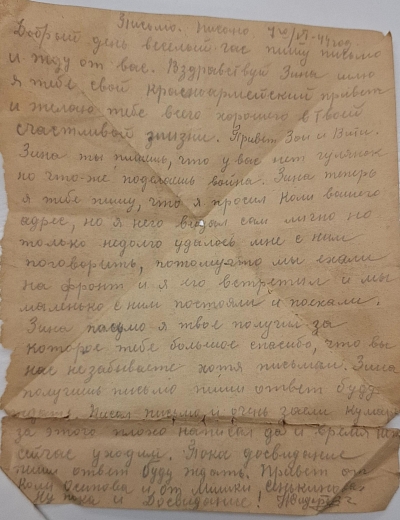 Письмо. Писано. 4го/VI-44 год.
Добрый день веселой час пишу письмо
и жду от вас. Вздравствуй Зина шлю
я тебе свой красноармейский привет
и желаю тебе всего хорошего в твоей
счастливой жизни. Привет Зои и Вити.
Зина ты пишешь, что у вас нет гулянок
но что-же поделаешь война. Зина теперь
я тебе пишу, что я просил Коли вашего
адрес, но я него видал сам лично но
только недолго удалось мне с ним
поговорить, потому-что мы ехали
на фронт и я его встретил и мы
маленько с ним постояли и поехали.
Зина письмо я твое получил за
которое тебе большое спасибо, что вы
нас незабываете хотя письмам. Зина
получишь письмо пиши ответ буду
ждать. Писал письмо и очень заели кумары
за этого плохо написал да и время
сейчас уходим. Пока досвидание
пиши ответ буду ждать. Привет от
Коли Осипова и от Мишки
Ну пока и Досвидание!